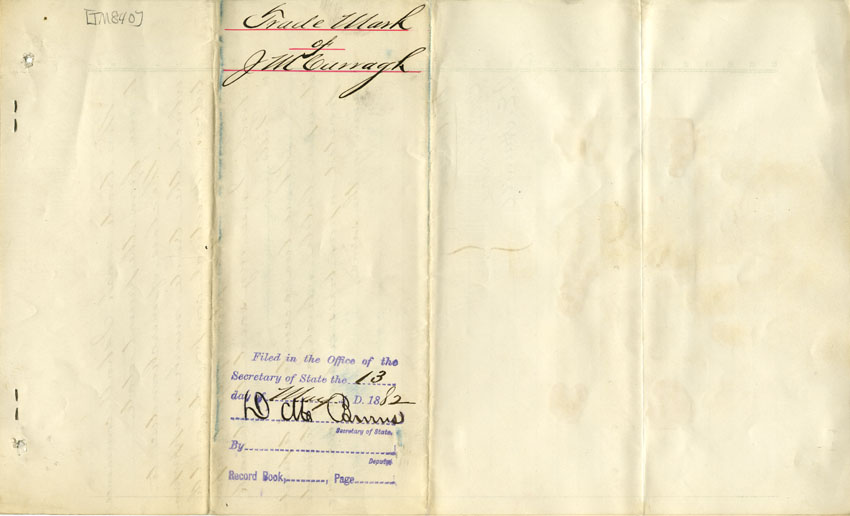 [TM840]
Trade Mark
of
J McCurragh
Filed in the Office of the
Secretary of State the 13
day o May D. 1882
D M Burns
Secretary of State.
By
Deputy
Record Book, , Page